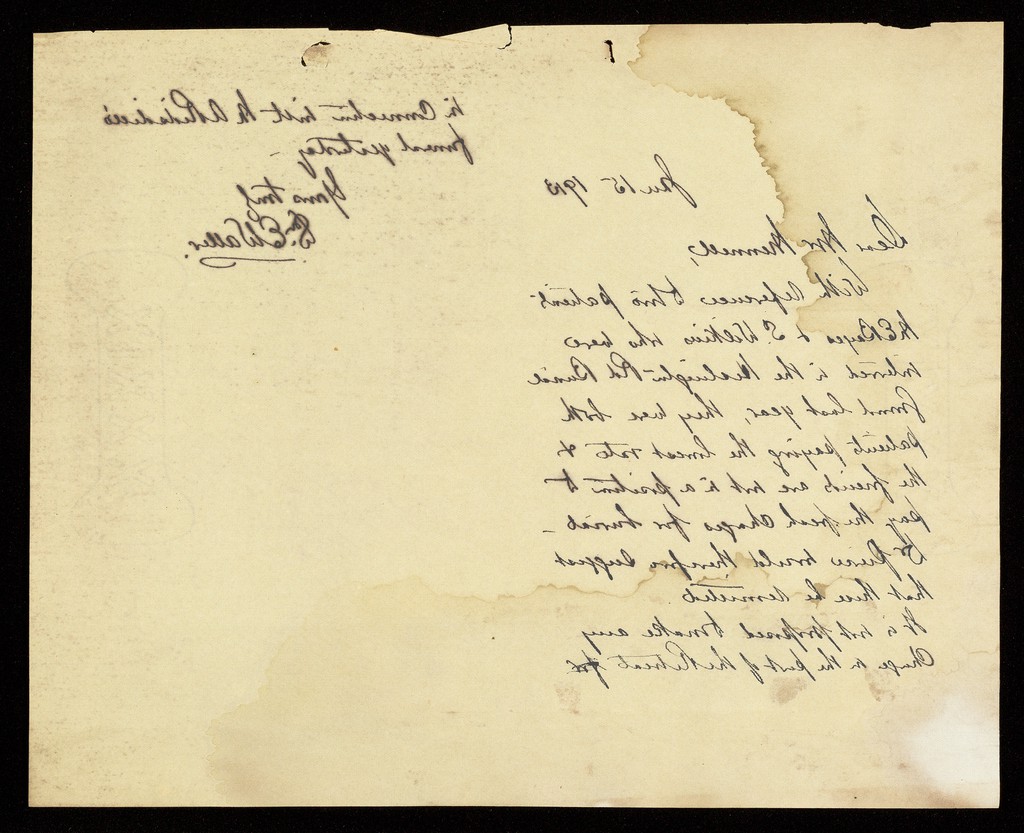 Jan 15 1913
Dear Mr Mennell,
With reference to two patients
M E Bayes & S. Wilkins who were
interred in the Heslington Rd Burial
Ground last year, they were both
patients paying the lowest rate &
the friends are not in a position to
pay the fresh charges for burial –
Dr Pierce would therefore suggest
that these be remitted
It is not proposed to make any
Charge on the part of the Retreat for
in Connection with M A
funeral yesterday –
Yours truly
E Waller.